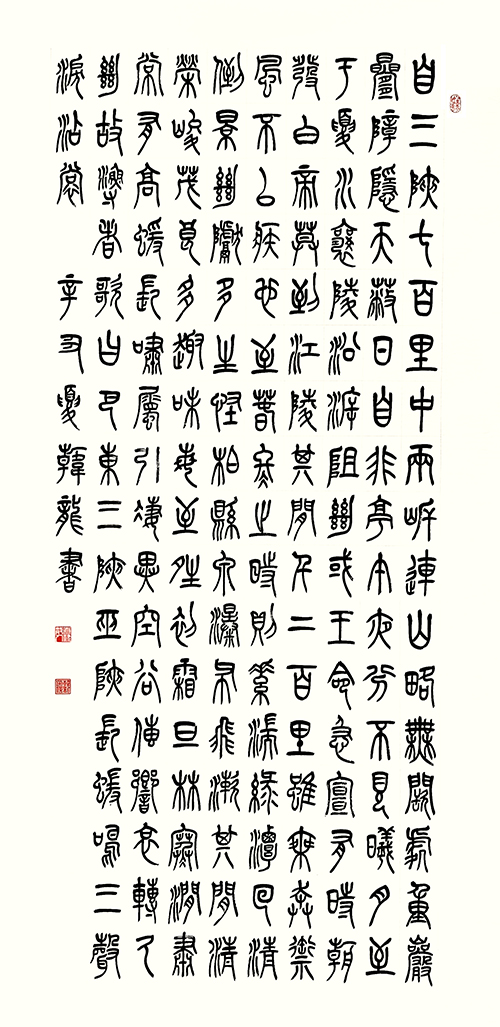 自三陜七百里中兩岸連山略無闕處重巖
疊障隱天蔽日自非亭午夜分不見曦月至
于夏水襄陵沿泝阻絕或王命急宣有時朝
發白帝莫到江陵其間千二百里雖乘奔禦
風不以疾也至春冬之時則素湍綠潭回清
倒景絕巘多生怪柏縣泉瀑布飛漱其間清
榮峻茂良多趣味每至晴初霜旦林寒澗肅
常有高猨長嘯屬引淒異空谷傳響哀轉久
絕故漁者歌曰巴東三陜巫陜長猨鳴三聲
淚沾裳 辛丑夏韓龍書